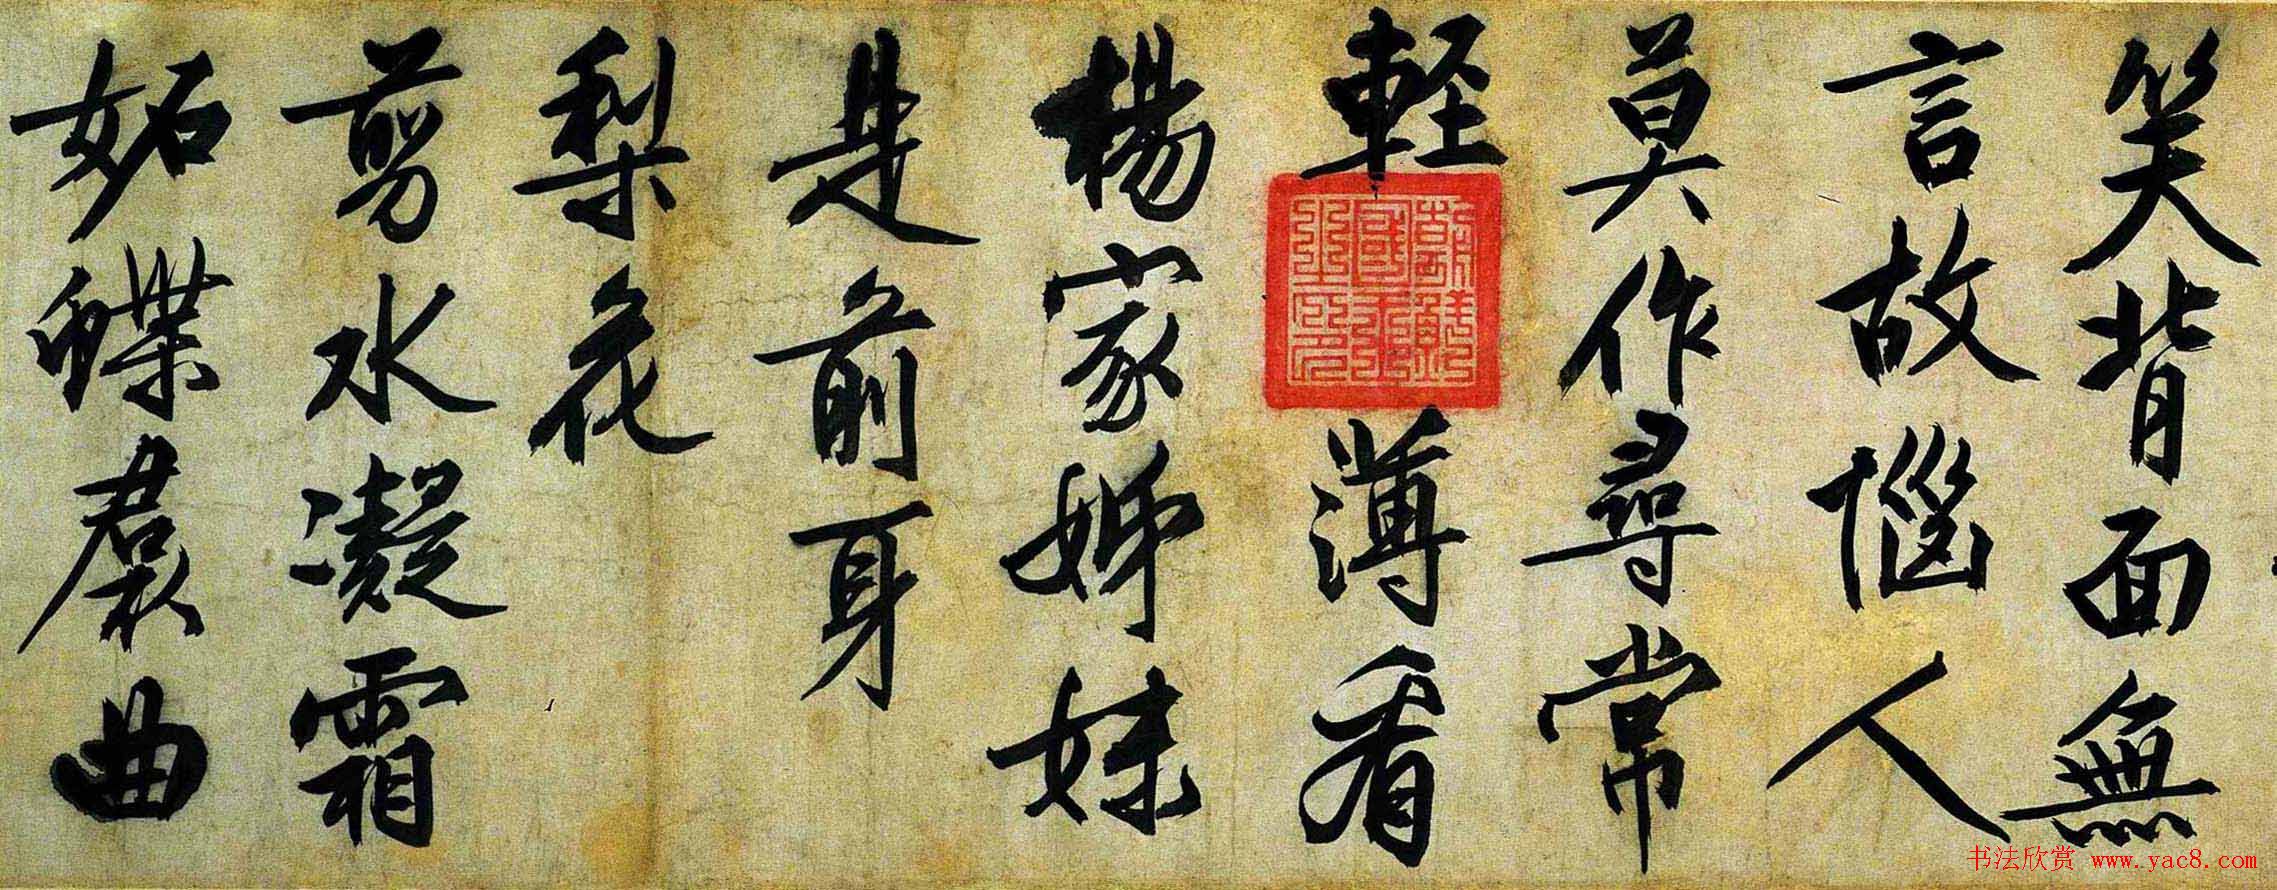 笑背面無
言故惱人
莫作尋常
輕薄看
楊家姊妹
是前身
梨花
剪水凝霜
妬蝶裙曲
书法欣赏 www.yac8.com